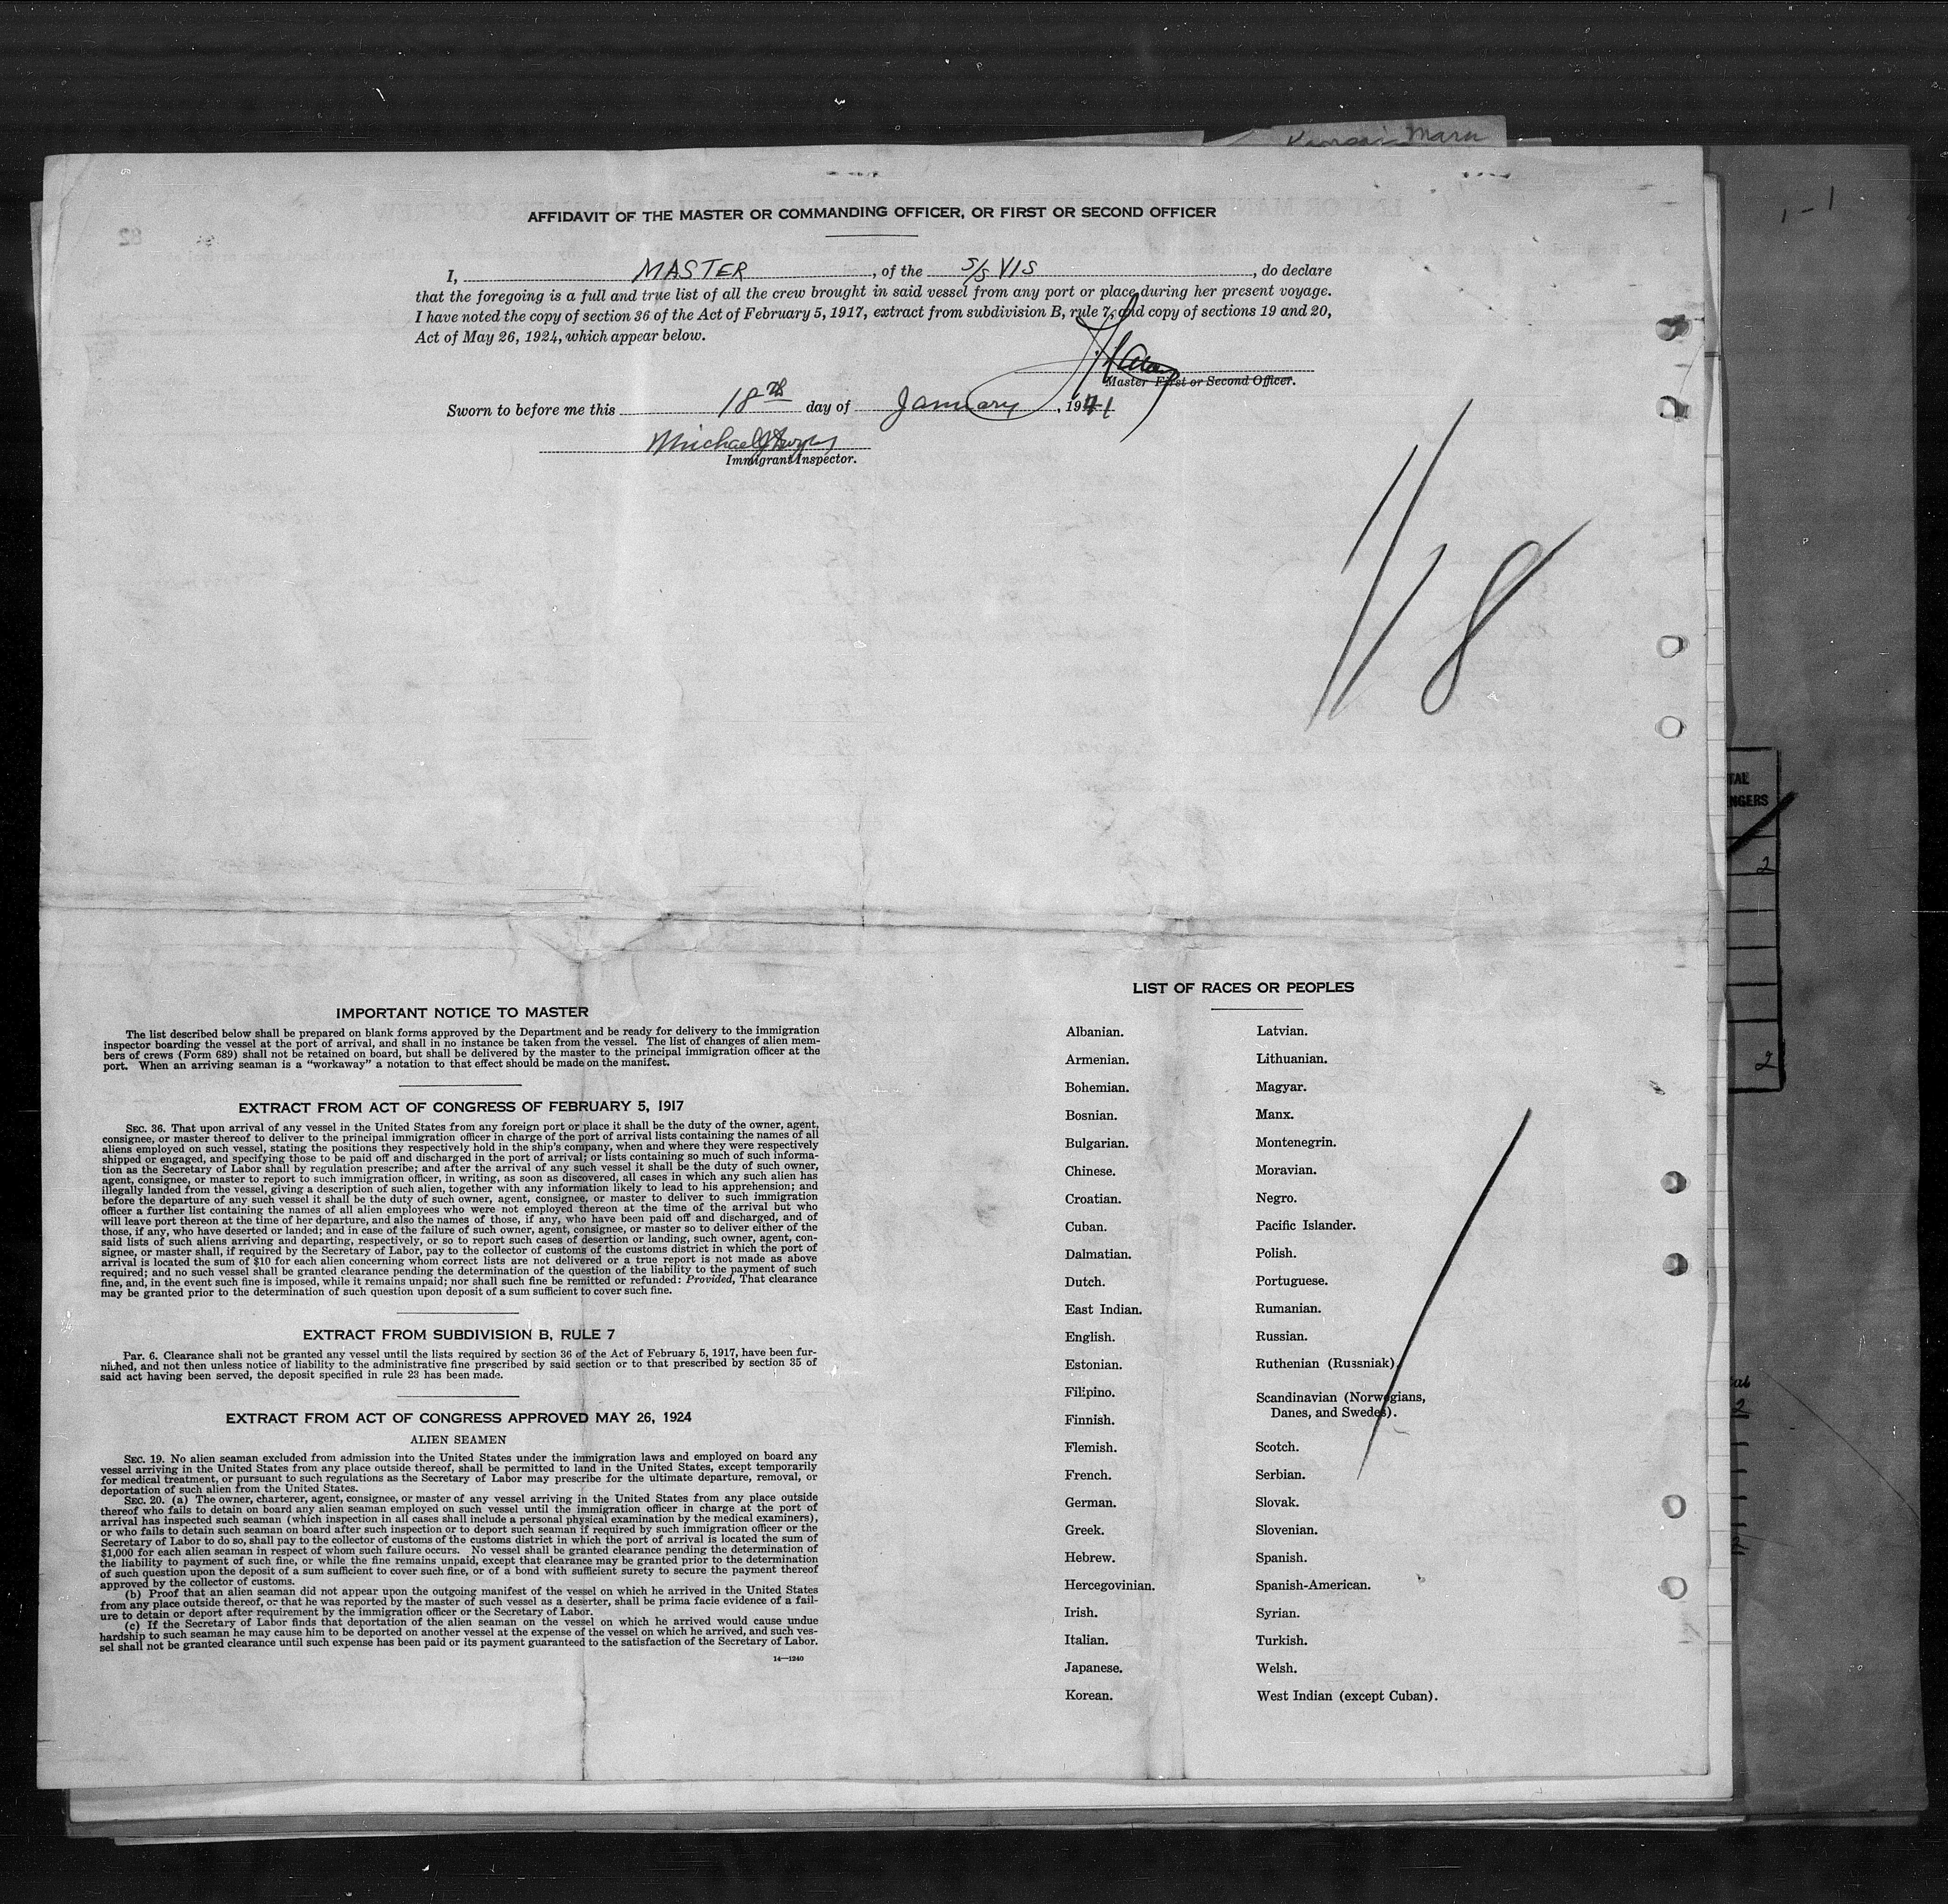 Maru
1-1
AFFIDAVIT OF THE MASTER OR COMMANDING OFFICER, OR FIRST OR SECOND OFFICER
82
I, MASTER, of the S/S VIS, do declare
that the foregoing is a full and true list of all the crew brought in said vessel from any port or place during her present voyage.
I have noted the copy of section 36 of the Act of February 5, 1917, extract from subdivision B, rule 7, and copy of sections 19 and 20,
Act of May 26, 1924, which appear below.
Master First or Second Officer.
Sworn to before me this 18th day of January, 1941
Michael
Immigrant Inspector.
1/18
IMPORTANT NOTICE TO MASTER
The list described below shall be prepared on blank forms approved by the Department and be ready for delivery to the immigration
inspector boarding the vessel at the port of arrival, and shall in no instance be taken from the vessel. The list of changes of alien mem-
bers of crews (Form 689) shall not be retained on board, but shall be delivered by the master to the principal immigration officer at the
port. When an arriving seaman is a "workaway" a notation to that effect should be made on the manifest.
EXTRACT FROM ACT OF CONGRESS OF FEBRUARY 5, 1917
SEC. 36. That upon arrival of any vessel in the United States from any foreign port or place it shall be the duty of the owner, agent,
consignee, or master thereof to deliver to the principal immigration officer in charge of the port of arrival lists containing the names of all
aliens employed on such vessel, stating the positions they respectively hold in the ship's company, when and where they were respectively
shipped or engaged, and specifying those to be paid off and discharged in the port of arrival; or lists containing so much of such informa-
tion as the Secretary of Labor shall by regulation prescribe; and after the arrival of any such vessel it shall be the duty of such owner,
agent, consignee, or master to report to such immigration officer, in writing, as soon as discovered, all cases in which any such alien has
illegally landed from the vessel, giving a description of such alien, together with any information likely to lead to his apprehension; and
before the departure of any such vessel it shall be the duty of such owner, agent, consignee, or master to deliver to such immigration
officer a further list containing the names of all alien employees who were not employed thereon at the time of the arrival but who
will leave port thereon at the time of her departure, and also the names of those, if any, who have been paid off and discharged, and of
those, if any, who have deserted or landed; and in case of the failure of such owner, agent, consignee, or master so to deliver either of the
said lists of such aliens arriving and departing, respectively, or so to report such cases of desertion or landing, such owner, agent, con-
signee, or master shall, if required by the Secretary of Labor, pay to the collector of customs of the customs district in which the port of
arrival is located the sum of $10 for each alien concerning whom correct lists are not delivered or a true report is not made as above
required; and no such vessel shall be granted clearance pending the determination of the question of the liability to the payment of such
fine, and, in the event such fine is imposed, while it remains unpaid; nor shall such fine be remitted or refunded: Provided, That clearance
may be granted prior to the determination of such question upon deposit of a sum sufficient to cover such fine.
EXTRACT FROM SUBDIVISION B, RULE 7
Par. 6. Clearance shall not be granted any vessel until the lists required by section 36 of the Act of February 5, 1917, have been fur-
nished, and not then unless notice of liability to the administrative fine prescribed by said section or to that prescribed by section 35 of
said act having been served, the deposit specified in rule 23 has been made.
EXTRACT FROM ACT OF CONGRESS APPROVED MAY 26, 1924
ALIEN SEAMEN
SEC. 19. No alien seaman excluded from admission into the United States under the immigration laws and employed on board any
vessel arriving in the United States from any place outside thereof, shall be permitted to land in the United States, except temporarily
for medical treatment, or pursuant to such regulations as the Secretary of Labor may prescribe for the ultimate departure, removal, or
deportation of such alien from the United States.
SEC. 20. (a) The owner, charterer, agent, consignee, or master of any vessel arriving in the United States from any place outside
thereof who fails to detain on board any alien seaman employed on such vessel until the immigration officer in charge at the port of
arrival has inspected such seaman (which inspection in all cases shall include a personal physical examination by the medical examiners),
or who fails to detain such seaman on board after such inspection or to deport such seaman if required by such immigration officer or the
Secretary of Labor to do so, shall pay to the collector of customs of the customs district in which the port of arrival is located the sum of
$1,000 for each alien seaman in respect of whom such failure occurs. No vessel shall be granted clearance pending the determination of
the liability to payment of such fine, or while the fine remains unpaid, except that clearance may be granted prior to the determination
of such question upon the deposit of a sum sufficient to cover such fine, or of a bond with sufficient surety to secure the payment thereof
approved by the collector of customs.
(b) Proof that an alien seaman did not appear upon the outgoing manifest of the vessel on which he arrived in the United States
from any place outside thereof, or that he was reported by the master of such vessel as a deserter, shall be prima facie evidence of a fail-
ure to detain or deport after requirement by the immigration officer or the Secretary of Labor.
(c) If the Secretary of Labor finds that deportation of the alien seaman on the vessel on which he arrived would cause undue
hardship to such seaman he may cause him to be deported on another vessel at the expense of the vessel on which he arrived, and such ves-
sel shall not be granted clearance until such expense has been paid or its payment guaranteed to the satisfaction of the Secretary of Labor.
14—1240
LIST OF RACES OR PEOPLES
Albanian.
Armenian.
Bohemian.
Bosnian.
Bulgarian.
Chinese.
Croatian.
Cuban.
Dalmatian.
Dutch.
East Indian.
English.
Estonian.
Filipino.
Finnish.
Flemish.
French.
German.
Greek.
Hebrew.
Hercegovinian.
Irish.
Italian.
Japanese.
Korean.
Latvian.
Lithuanian.
Magyar.
Manx.
Montenegrin.
Moravian.
Negro.
Pacific Islander.
Polish.
Portuguese.
Rumanian.
Russian.
Ruthenian (Russniak).
Scandinavian (Norwegians,
Danes, and Swedes).
Scotch.
Serbian.
Slovak.
Slovenian.
Spanish.
Spanish-American.
Syrian.
Turkish.
Welsh.
West Indian (except Cuban).
TAL
NGERS
2
2
2